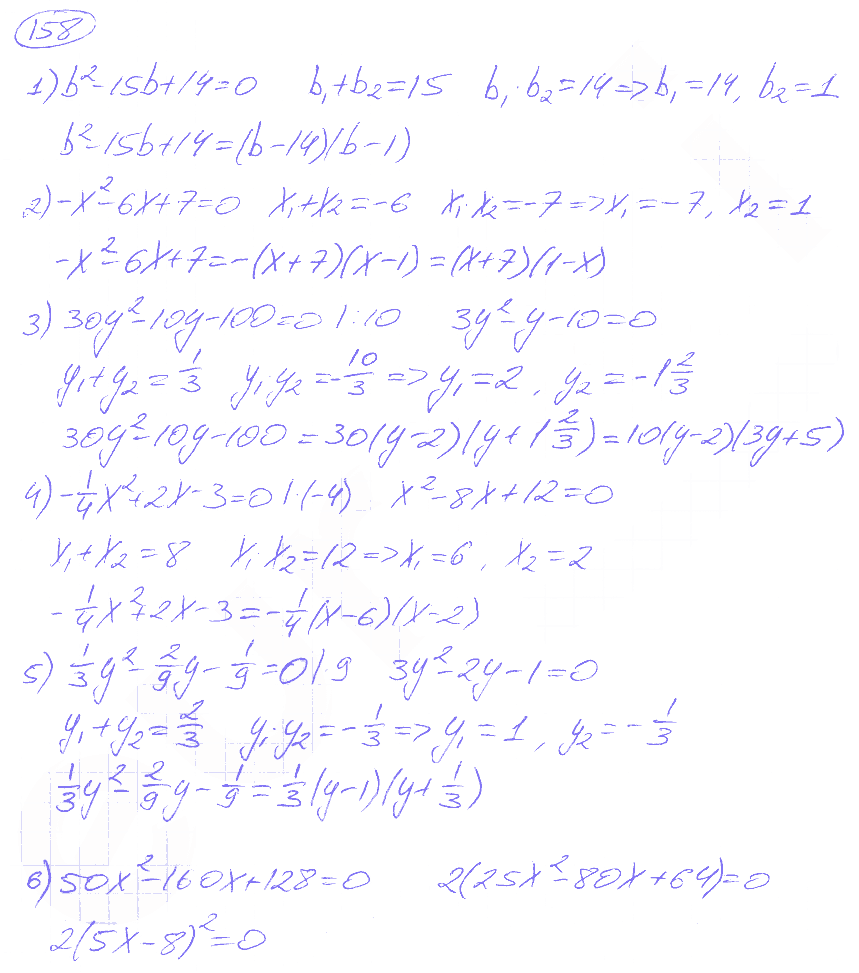 158
1) b² - 15b + 14 = 0 b₁ + b₂ = 15 b₁ · b₂ = 14 => b₁ = 14, b₂ = 1
b² - 15b + 14 = (b - 14)(b - 1)
2) -x² - 6x + 7 = 0 x₁ + x₂ = -6 x₁ · x₂ = -7 => x₁ = -7, x₂ = 1
-x² - 6x + 7 = -(x + 7)(x - 1) = (x + 7)(1 - x)
3) 30y² - 10y - 100 = 0 | : 10 3y² - y - 10 = 0
y₁ + y₂ = 1/3 y₁ · y₂ = -10/3 => y₁ = 2, y₂ = -1 2/3
30y² - 10y - 100 = 30(y - 2)(y + 1 2/3) = 10(y - 2)(3y + 5)
4) -1/4 x² + 2x - 3 = 0 | · (-4) x² - 8x + 12 = 0
x₁ + x₂ = 8 x₁ · x₂ = 12 => x₁ = 6, x₂ = 2
-1/4 x² + 2x - 3 = -1/4 (x - 6)(x - 2)
5) 1/3 y² - 2/9 y - 1/9 = 0 | · 9 3y² - 2y - 1 = 0
y₁ + y₂ = 2/3 y₁ · y₂ = -1/3 => y₁ = 1, y₂ = -1/3
1/3 y² - 2/9 y - 1/9 = 1/3 (y - 1)(y + 1/3)
6) 50x² - 160x + 128 = 0 2(25x² - 80x + 64) = 0
2(5x - 8)² = 0